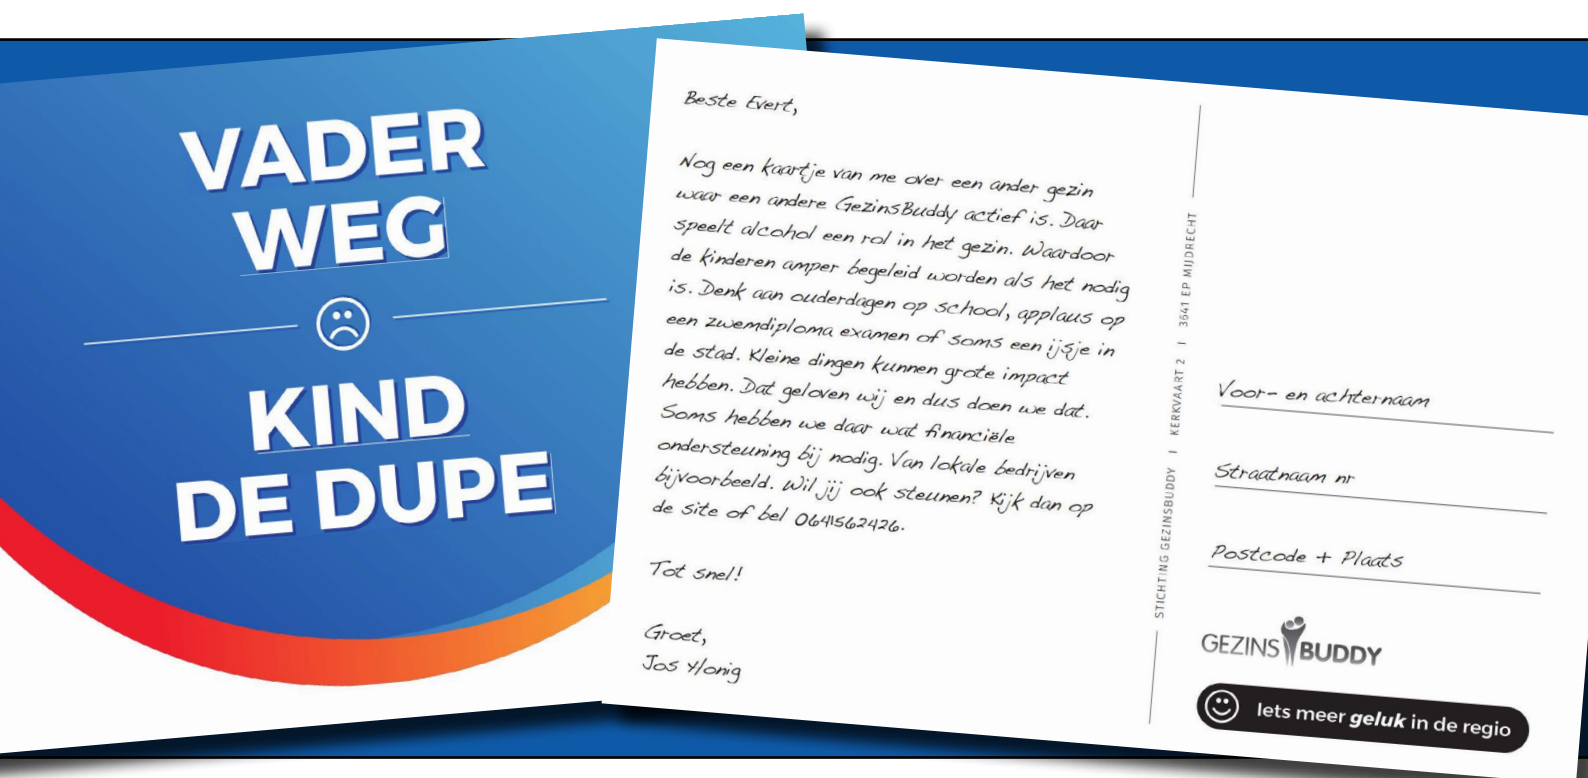 VADER
WEG
KIND
DE DUPE
Beste Evert,
Nog een kaartje van me over een ander gezin
waar een andere GezinsBuddy actief is. Daar
speelt alcohol een rol in het gezin. Waardoor
de kinderen amper begeleid worden als het nodig
is. Denk aan ouderdagen op school, applaus op
een zwemdiploma examen of soms een ijsje in
de stad. Kleine dingen kunnen grote impact
hebben. Dat geloven wij en dus doen we dat.
Soms hebben we daar wat financiële
ondersteuning bij nodig. Van lokale bedrijven
bijvoorbeeld. Wil jij ook steunen? Kijk dan op
de site of bel 0641562426.
Tot snel!
Groet,
Jos Honig
STICHTING GEZINSBUDDY | KERKVAART 2 | 3641 EP MIJDRECHT
Voor- en achternaam
Straatnaam nr
Postcode + Plaats
GEZINSBUDDY
Iets meer geluk in de regio